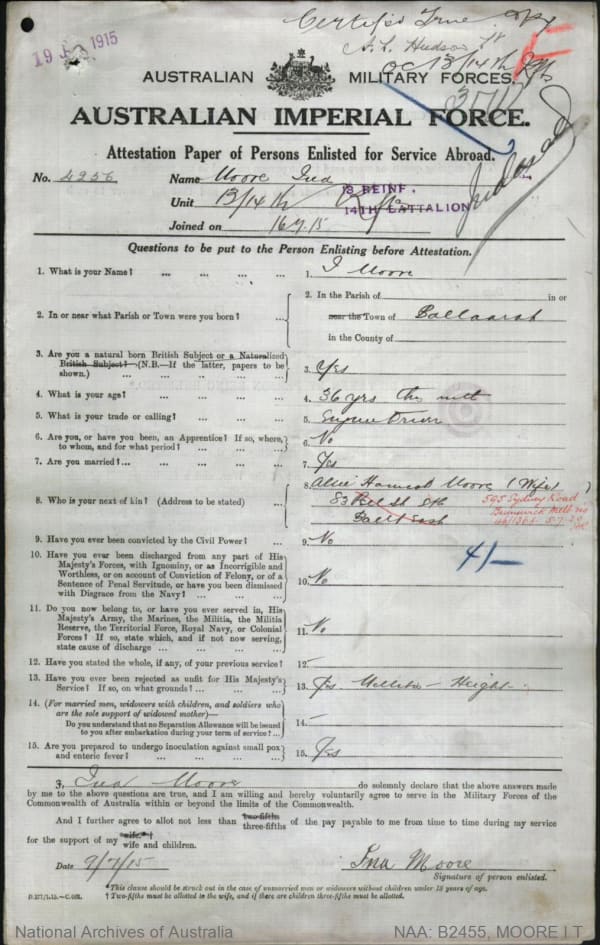 19 1915
Certified True Copy
A. L. Hudson
OC 13/14th Rfts
AUSTRALIAN MILITARY FORCES.
AUSTRALIAN IMPERIAL FORCE.
Attestation Paper of Persons Enlisted for Service Abroad.
No. 4256 Name Moore Ina
Unit 13/14th Rfts
13 REINF.
14TH BATTALION
Joined on 16.7.15
Questions to be put to the Person Enlisting before Attestation.
1. What is your Name? ... ... ... ... 1. I Moore
2. In or near what Parish or Town were you born? ... 2. In the Parish of in or
near the Town of Ballaarat
in the County of
3. Are you a natural born British Subject or a Naturalized
British Subject? (N.B.—If the latter, papers to be
shown.) ... ... ... ... 3. Yes
4. What is your age? ... ... ... ... 4. 36 yrs
5. What is your trade or calling? ... ... ... 5. Engine Driver
6. Are you, or have you been, an Apprentice? If so, where,
to whom, and for what period? ... ... ... 6. No
7. Are you married?... ... ... ... 7. Yes
8. Who is your next of kin? (Address to be stated) ... 8. Moore (Wife)
83 Peel St Sth
Ballt East
595 Sydney Road
Brunswick
9. Have you ever been convicted by the Civil Power? ... 9. No
4/-
10. Have you ever been discharged from any part of His
Majesty's Forces, with Ignominy, or as Incorrigible and
Worthless, or on account of Conviction of Felony, or of a
Sentence of Penal Servitude, or have you been dismissed
with Disgrace from the Navy? ... ... ... 10. No
11. Do you now belong to, or have you ever served in, His
Majesty's Army, the Marines, the Militia, the Militia
Reserve, the Territorial Force, Royal Navy, or Colonial
Forces? If so, state which, and if not now serving,
state cause of discharge ... ... ... ... 11. No
12. Have you stated the whole, if any, of your previous service? 12. -
13. Have you ever been rejected as unfit for His Majesty's
Service? If so, on what grounds? ... ... ... 13. Yes Height
14. (For married men, widowers with children, and soldiers who
are the sole support of widowed mother)—
Do you understand that no Separation Allowance will be issued
to you after embarkation during your term of service?... 14. -
15. Are you prepared to undergo inoculation against small pox
and enteric fever? ... ... ... ... 15. Yes
I, Ina Moore do solemnly declare that the above answers made
by me to the above questions are true, and I am willing and hereby voluntarily agree to serve in the Military Forces of the
Commonwealth of Australia within or beyond the limits of the Commonwealth.
And I further agree to allot not less than two-fifths three-fifths of the pay payable to me from time to time during my service
for the support of my wife.*† wife and children.
Date 9/7/15 Ina Moore
Signature of person enlisted.
*This clause should be struck out in the case of unmarried men or widowers without children under 18 years of age.
† Two-fifths must be allotted to the wife, and if there are children three-fifths must be allotted.
National Archives of Australia NAA: B2455, MOORE I T